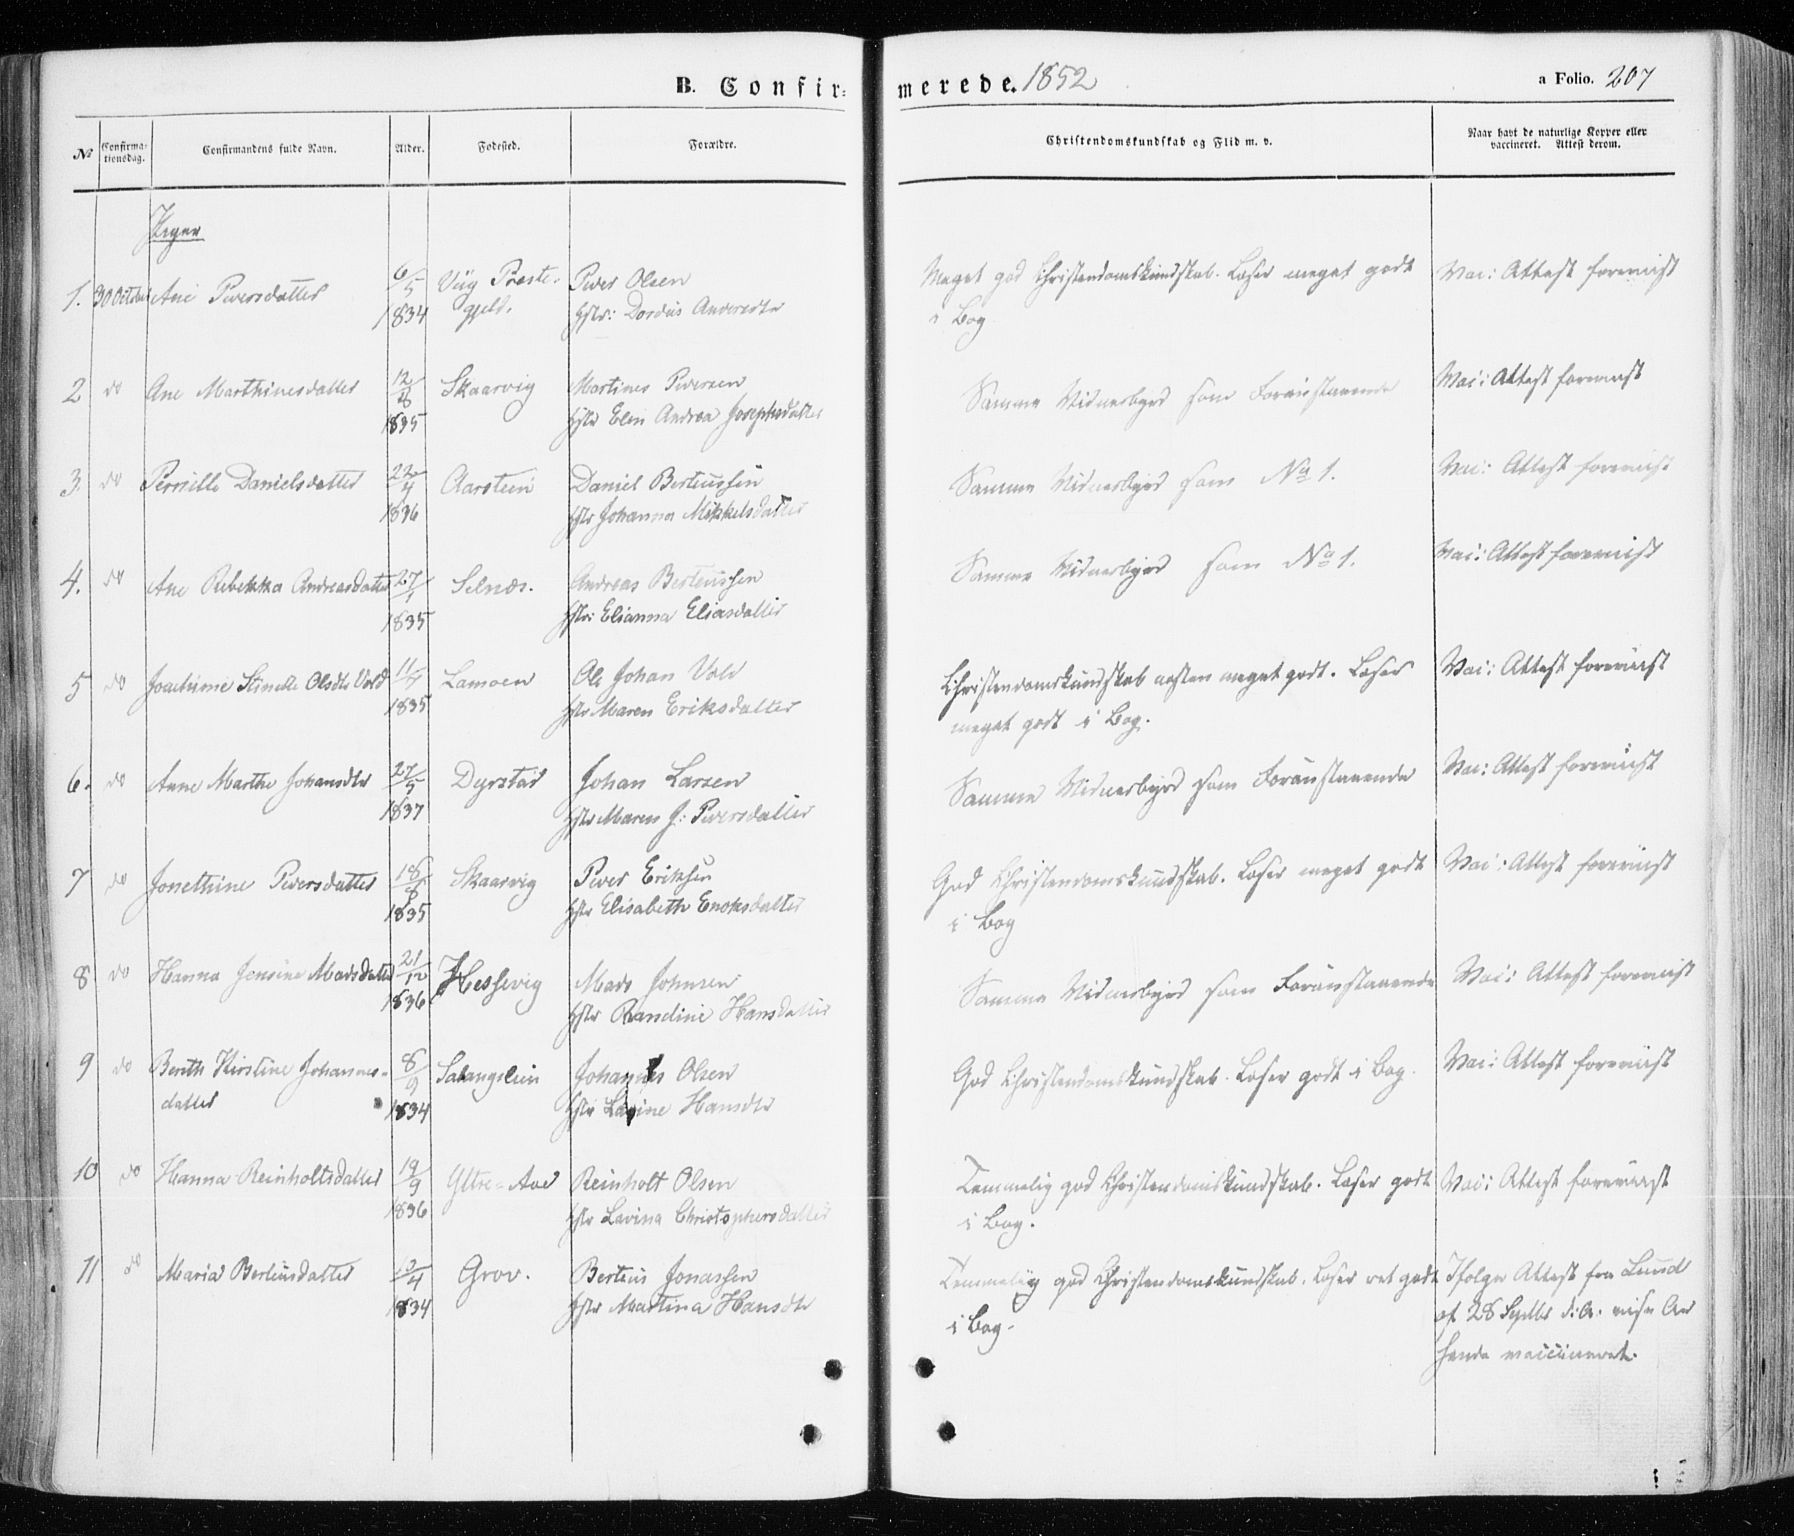 B. Confir-
merede. 1852
a Folio. 207
№
Confirma-
tionsdag.
Confirmandens fulde Navn.
Alder.
Fødested.
Forældre.
Christendomskundskab og Flid m. v.
Naar havt de naturlige Kopper eller
vaccineret. Attest derom.
Piger
1. 30 October Ane Peversdatter 6/5 1834 Præste-
gjeld. Peder Olsen
Hstr: Dordius
Meget god Christendomskundskab. Læser meget godt
i Bog
Vac: Attest foreviist
2 do Ane Marthinesdatter 12/8 1835 Skaarvig Martines Pedersen
Hstr Elen Andrea Josephsdatter
Samme Vidnesbyrd som Foranstaaende
Vac: Attest foreviist
3. do Pernille Danielsdatter 22/4 1836 Aarstein Daniel Berteussen
Hstr Johanna Mikkelsdatter
Samme Vidnesbyrd som No 1.
Vac: Attest foreviist
4. do Ane Rebekka Andreasdatter 27/1 1835 Selnæs. Andreas Berteussen
Hstr: Elianna Eliasdatter
Samme Vidnesbyrd som No 1.
Vac: Attest foreviist
5 do Joachime Stinette Olsdtr Vold 1835 Lamoen Ole Johan Vold
Hstr Maren Eriksdatter
Christendomskundskab næsten meget godt. Læser
meget godt i Bog.
Vac: Attest foreviist
6. do Anne Marthe Johansdtr 27/5 1837 Dyrstad Johan Larsen
Hstr Maren J: Pedersdatter
Samme Vidnesbyrd som Foranstaaende
Vac: Attest foreviist
7 do Jonethine Pedersdatter 18/8 1835 Skaarvig Peder Eriksen
Hstr Elisabeth Enoksdatter
God Christendomskundskab. Læser meget godt
i Bog
Vac: Attest foreviist
8 do Hanna Jensine Madsdatter 21/12 1836 Hessevig Mads Johnsen
Hstr Randine Hansdatter
Samme Vidnesbyrd som Foranstaaende
Vac: Attest foreviist
9 do Berith Kirstine Johannes-
datter 8/9 1834 Salangslien Johannes Olsen
Hstr Lavine Hansdtr
God Christendomskundskab. Læser godt i Bog.
Vac: Attest foreviist
10 do Hanna Reinholtsdatter 19/9 1836 Yttre- Reinholt Olsen
Hstr Lavina Christophersdatter
Temmelig god Christendomskundskab. Læser godt
i Bog.
Vac: Attest foreviist
11 do Maria Berteusdatter 12/4 1834 Grov. Berteus Jonassen
Hstr Martina Hansdtr
Temmelig god Christendomskundskab. Læser ret godt
i Bog.
Ifølge Attest fra Lund
af 28 Septbr d: A.
vaccineret.